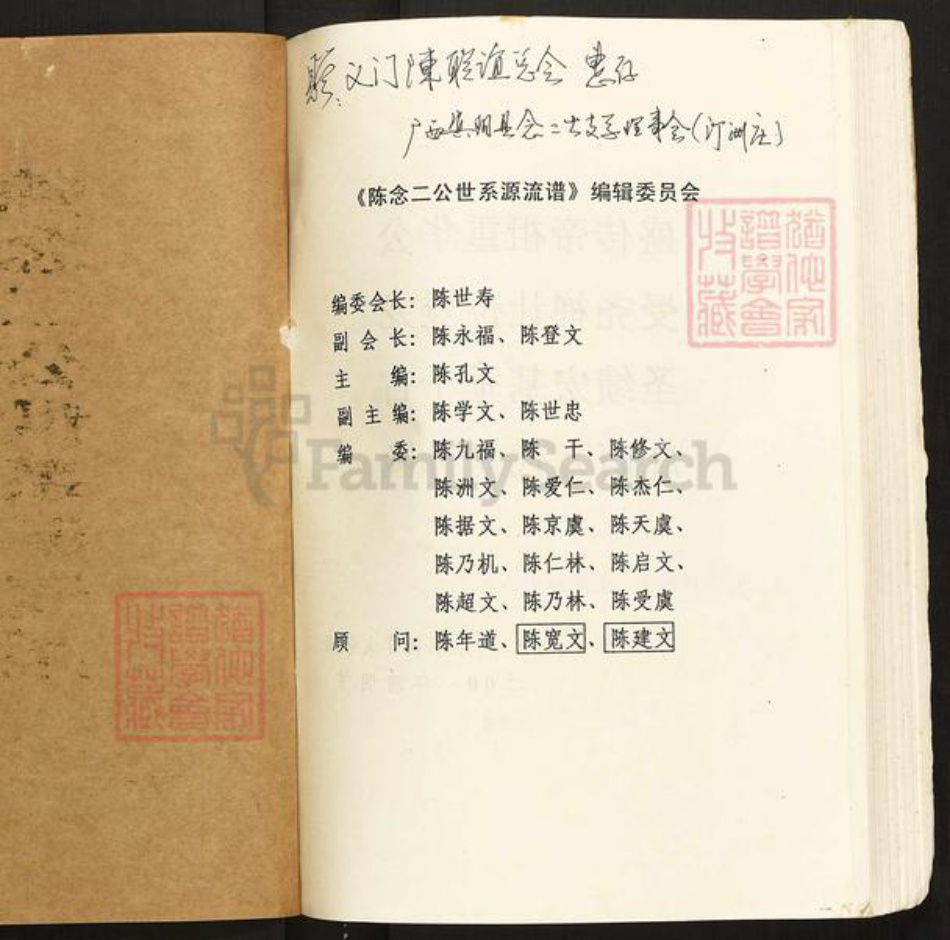 义门陳联谊总会 惠存
广西 县念二公支系理事会(汀洲庄)
《陈念二公世系源流谱》编辑委员会
编委会长：陈世寿
副 会 长：陈永福、陈登文
主 编：陈孔文
副 主 编：陈学文、陈世忠
编 委：陈九福、陈 干、陈修文、
陈洲文、陈爱仁、陈杰仁、
陈据文、陈京虞、陈天虞、
陈乃机、陈仁林、陈启文、
陈超文、陈乃林、陈受虞
顾 问：陈年道、陈宽文、陈建文
FamilySearch